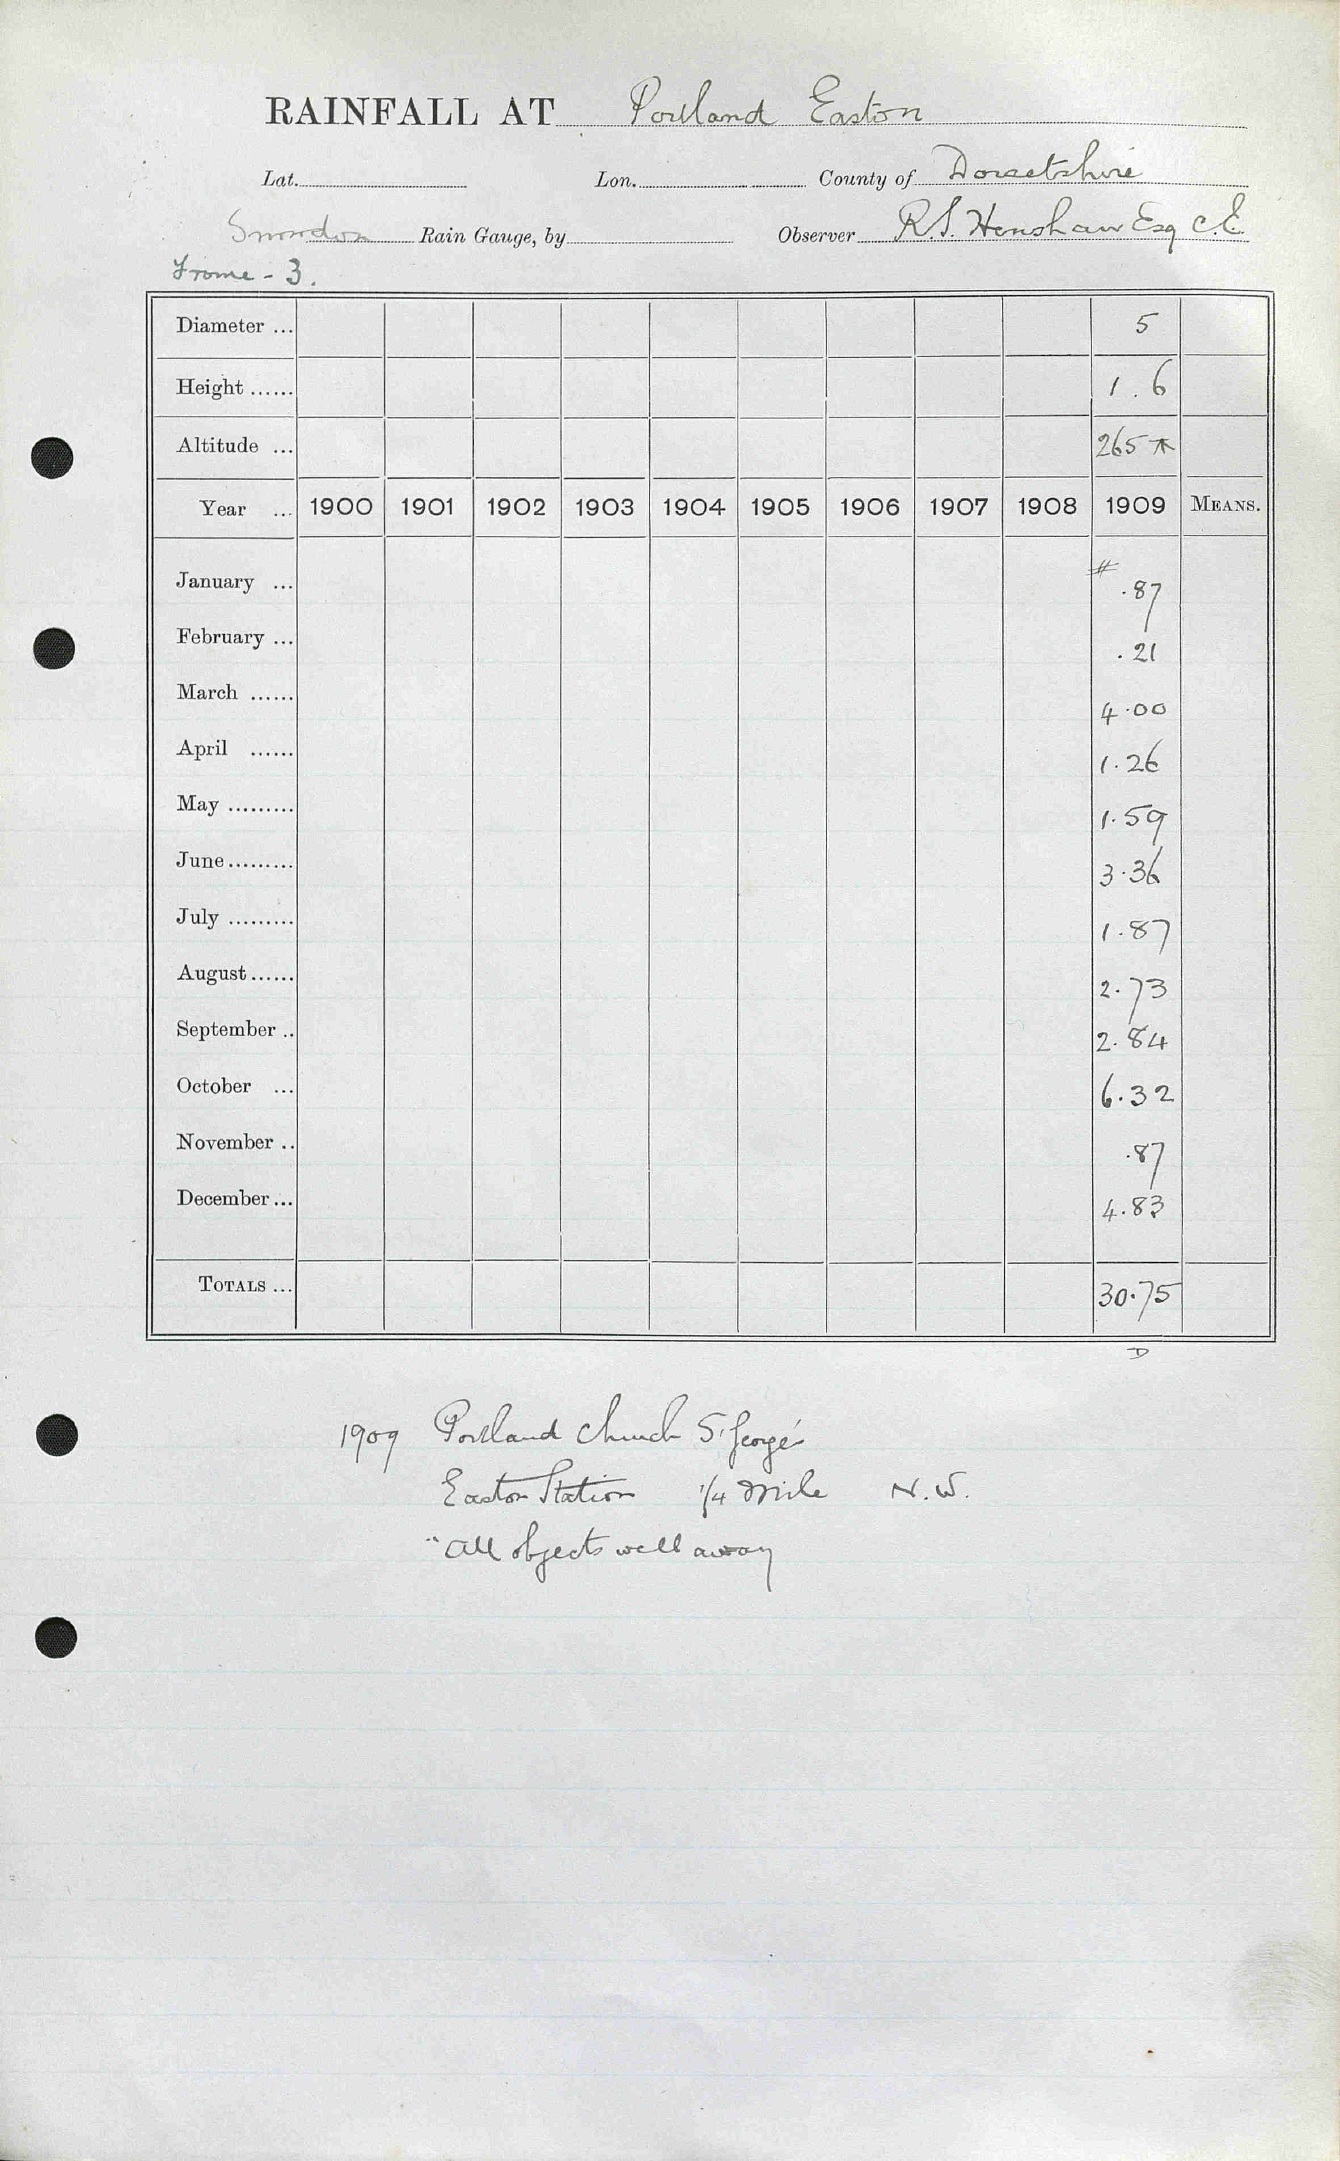 RAINFALL AT Portland Easton
Lat. Lon. County of Dorsetshire
Snowdon Rain Gauge, by Observer R.S. Henshaw Esq C.E.
Frome - 3.
Diameter ... 5
Height ...... 1.6
Altitude ... 265
Year ... 1900 1901 1902 1903 1904 1905 1906 1907 1908 1909 MEANS.
January ... # .87
February ... .21
March ...... 4.00
April ...... 1.26
May ......... 1.59
June ......... 3.36
July ......... 1.87
August ...... 2.73
September .. 2.84
October ... 6.32
November .. .87
December ... 4.83
TOTALS ... 30.75
D
1909 Portland Church St George's
Easton Station 1/4 Mile N.W.
"All objects well away